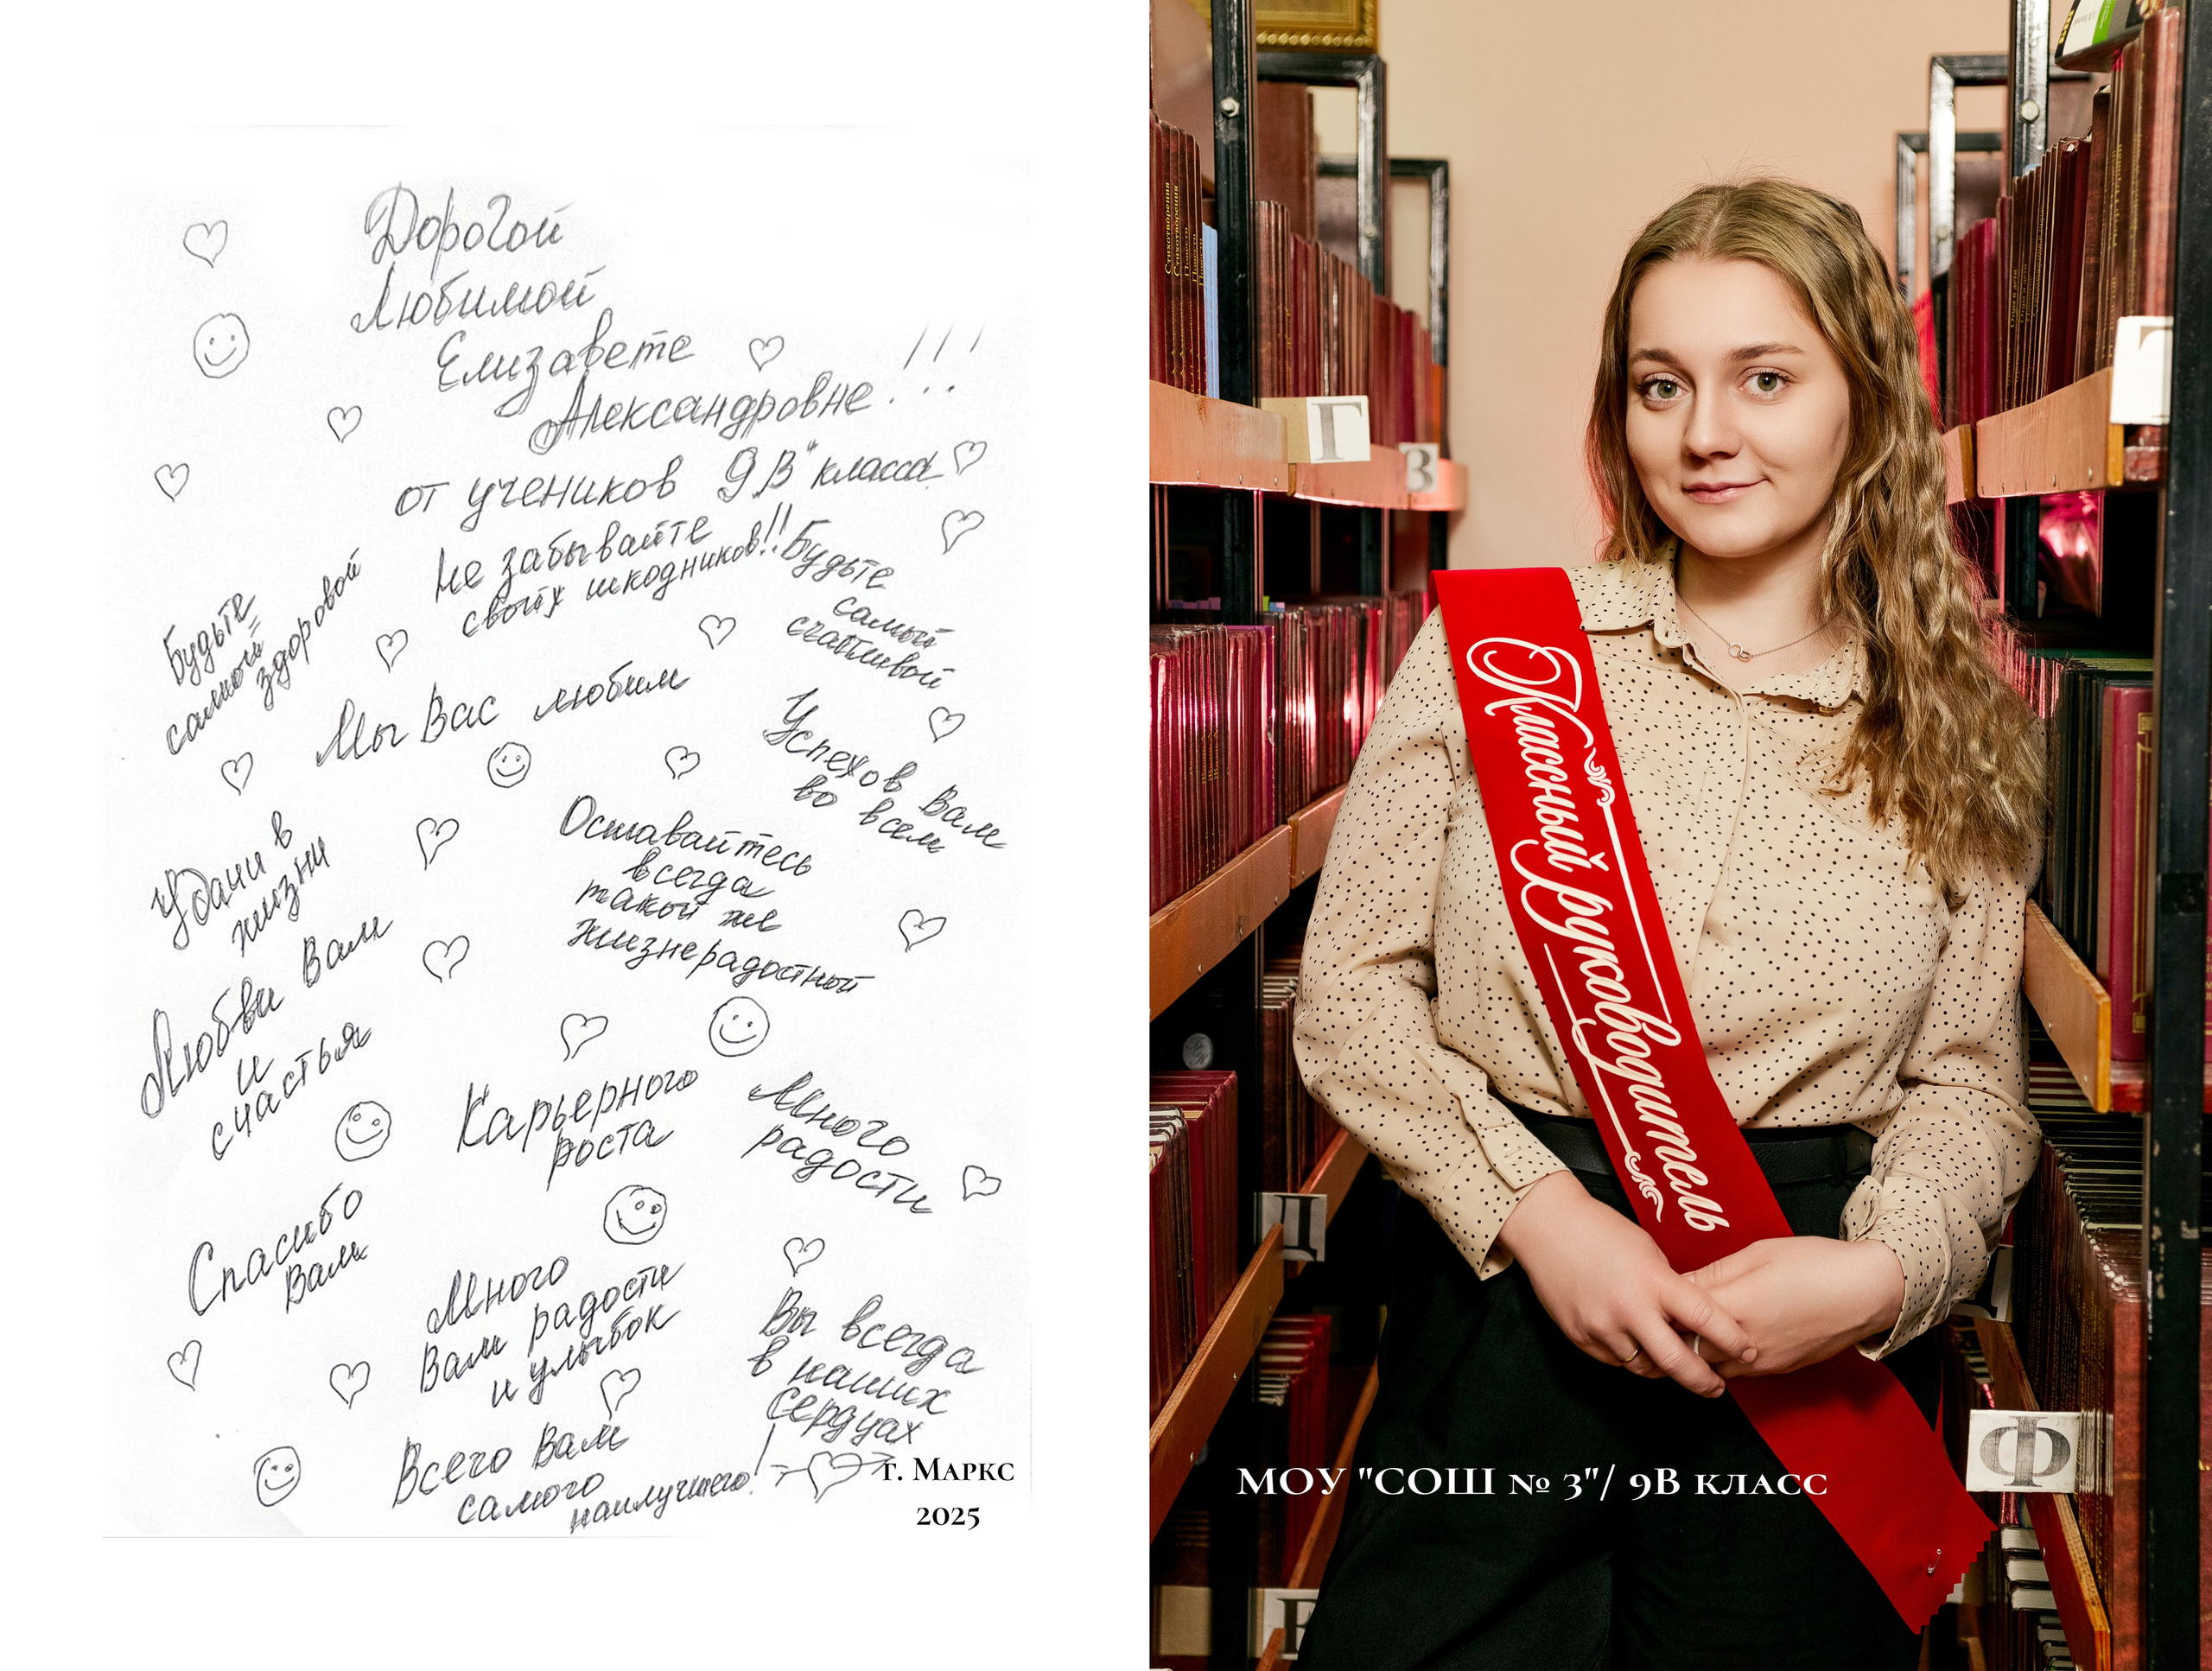 Дорогой
Любимой
Елизавете
Александровне!!!
от учеников 9 В" класса
Не забывайте
своих шкодников!!
Будьте
самый
счастливой
Будьте
самой
здоровой
Мы Вас любим
Успехов Вам
во всем
Удачи в
жизни
Оставайтесь
всегда
такой же
жизнерадостной
Любви Вам
и
счастья
Карьерного
роста
Много
радости
Спасибо
Вам
Много
Вам радости
и улыбок
Вы всегда
в наших
сердцах
Всего Вам
самого
наилучшего!
г. Маркс
2025
Стихотворения
Стихотворения
Повести
Повести
Г
З
Классный руководитель
Д
Ф
МОУ "СОШ № 3"/ 9В класс